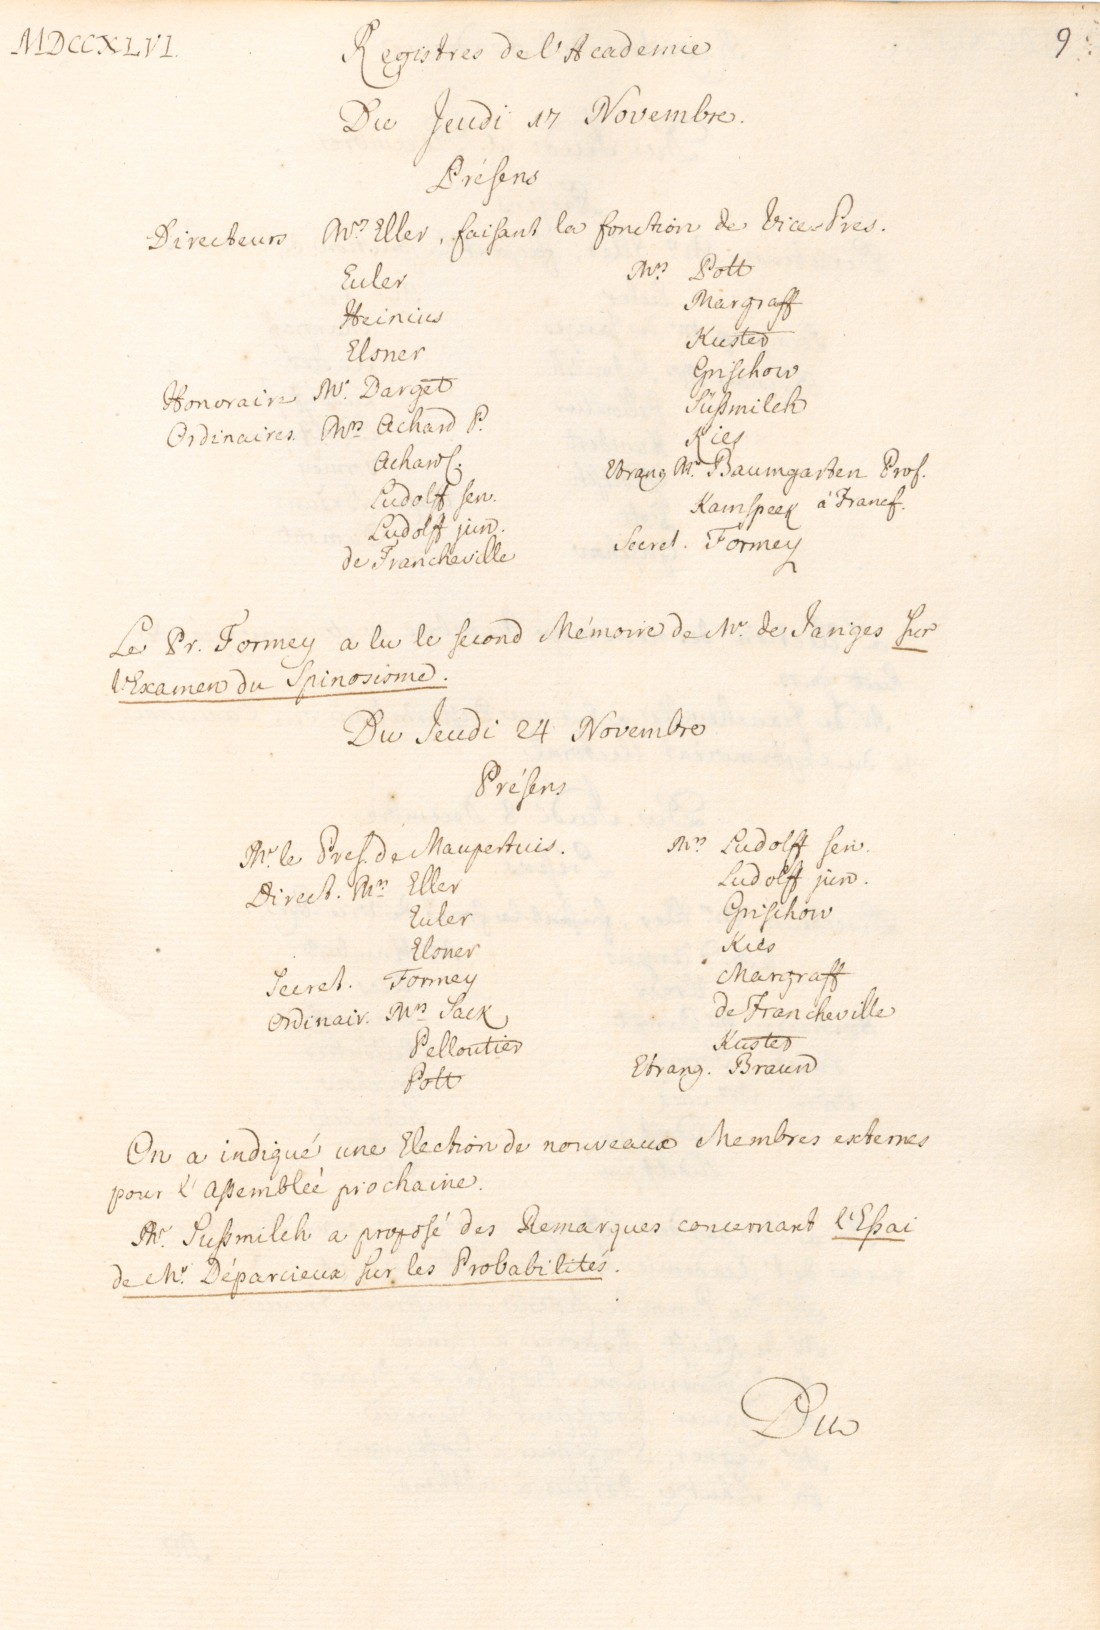 MDCCXLVI.
Registres de l'Academie
9
Du Jeudi 17 Novembre.
Présens
Directeurs Mrs Eller, faisant la fonction de Vice-Pres.
Euler
Heinius
Elsner
Honoraire Mr. Darget
Ordinaires. Mrs Achard P.
Achard
Ludolff sen.
Ludolff jun.
de Francheville
Mrs Pott
Margraff
Kuster
Grischow
Süßmilch
Kies
Etrang Mr. Baumgarten Prof.
à Francf.
Secret. Formey
Le Pr. Formey a lu le second Mémoire de Mr. de Jariges sur
l'Examen du Spinosisme.
Du Jeudi 24 Novembre
Présens
Mr. le Pres. de Maupertuis.
Direct. Mrs Eller
Euler
Elsner
Secret. Formey
Ordinair. Mrs Sack
Pelloutier
Pott
Mrs Ludolff sen.
Ludolff jun.
Grischow
Kies
Margraff
de Francheville
Kuster
Etrang. Braun
On a indiqué une Election de nouveaux Membres externes
pour l'Assemblée prochaine.
Mr. Sußmilch a proposé des Remarques concernant l'Essai
de Mr. Déparcieux sur les Probabilités.
Du